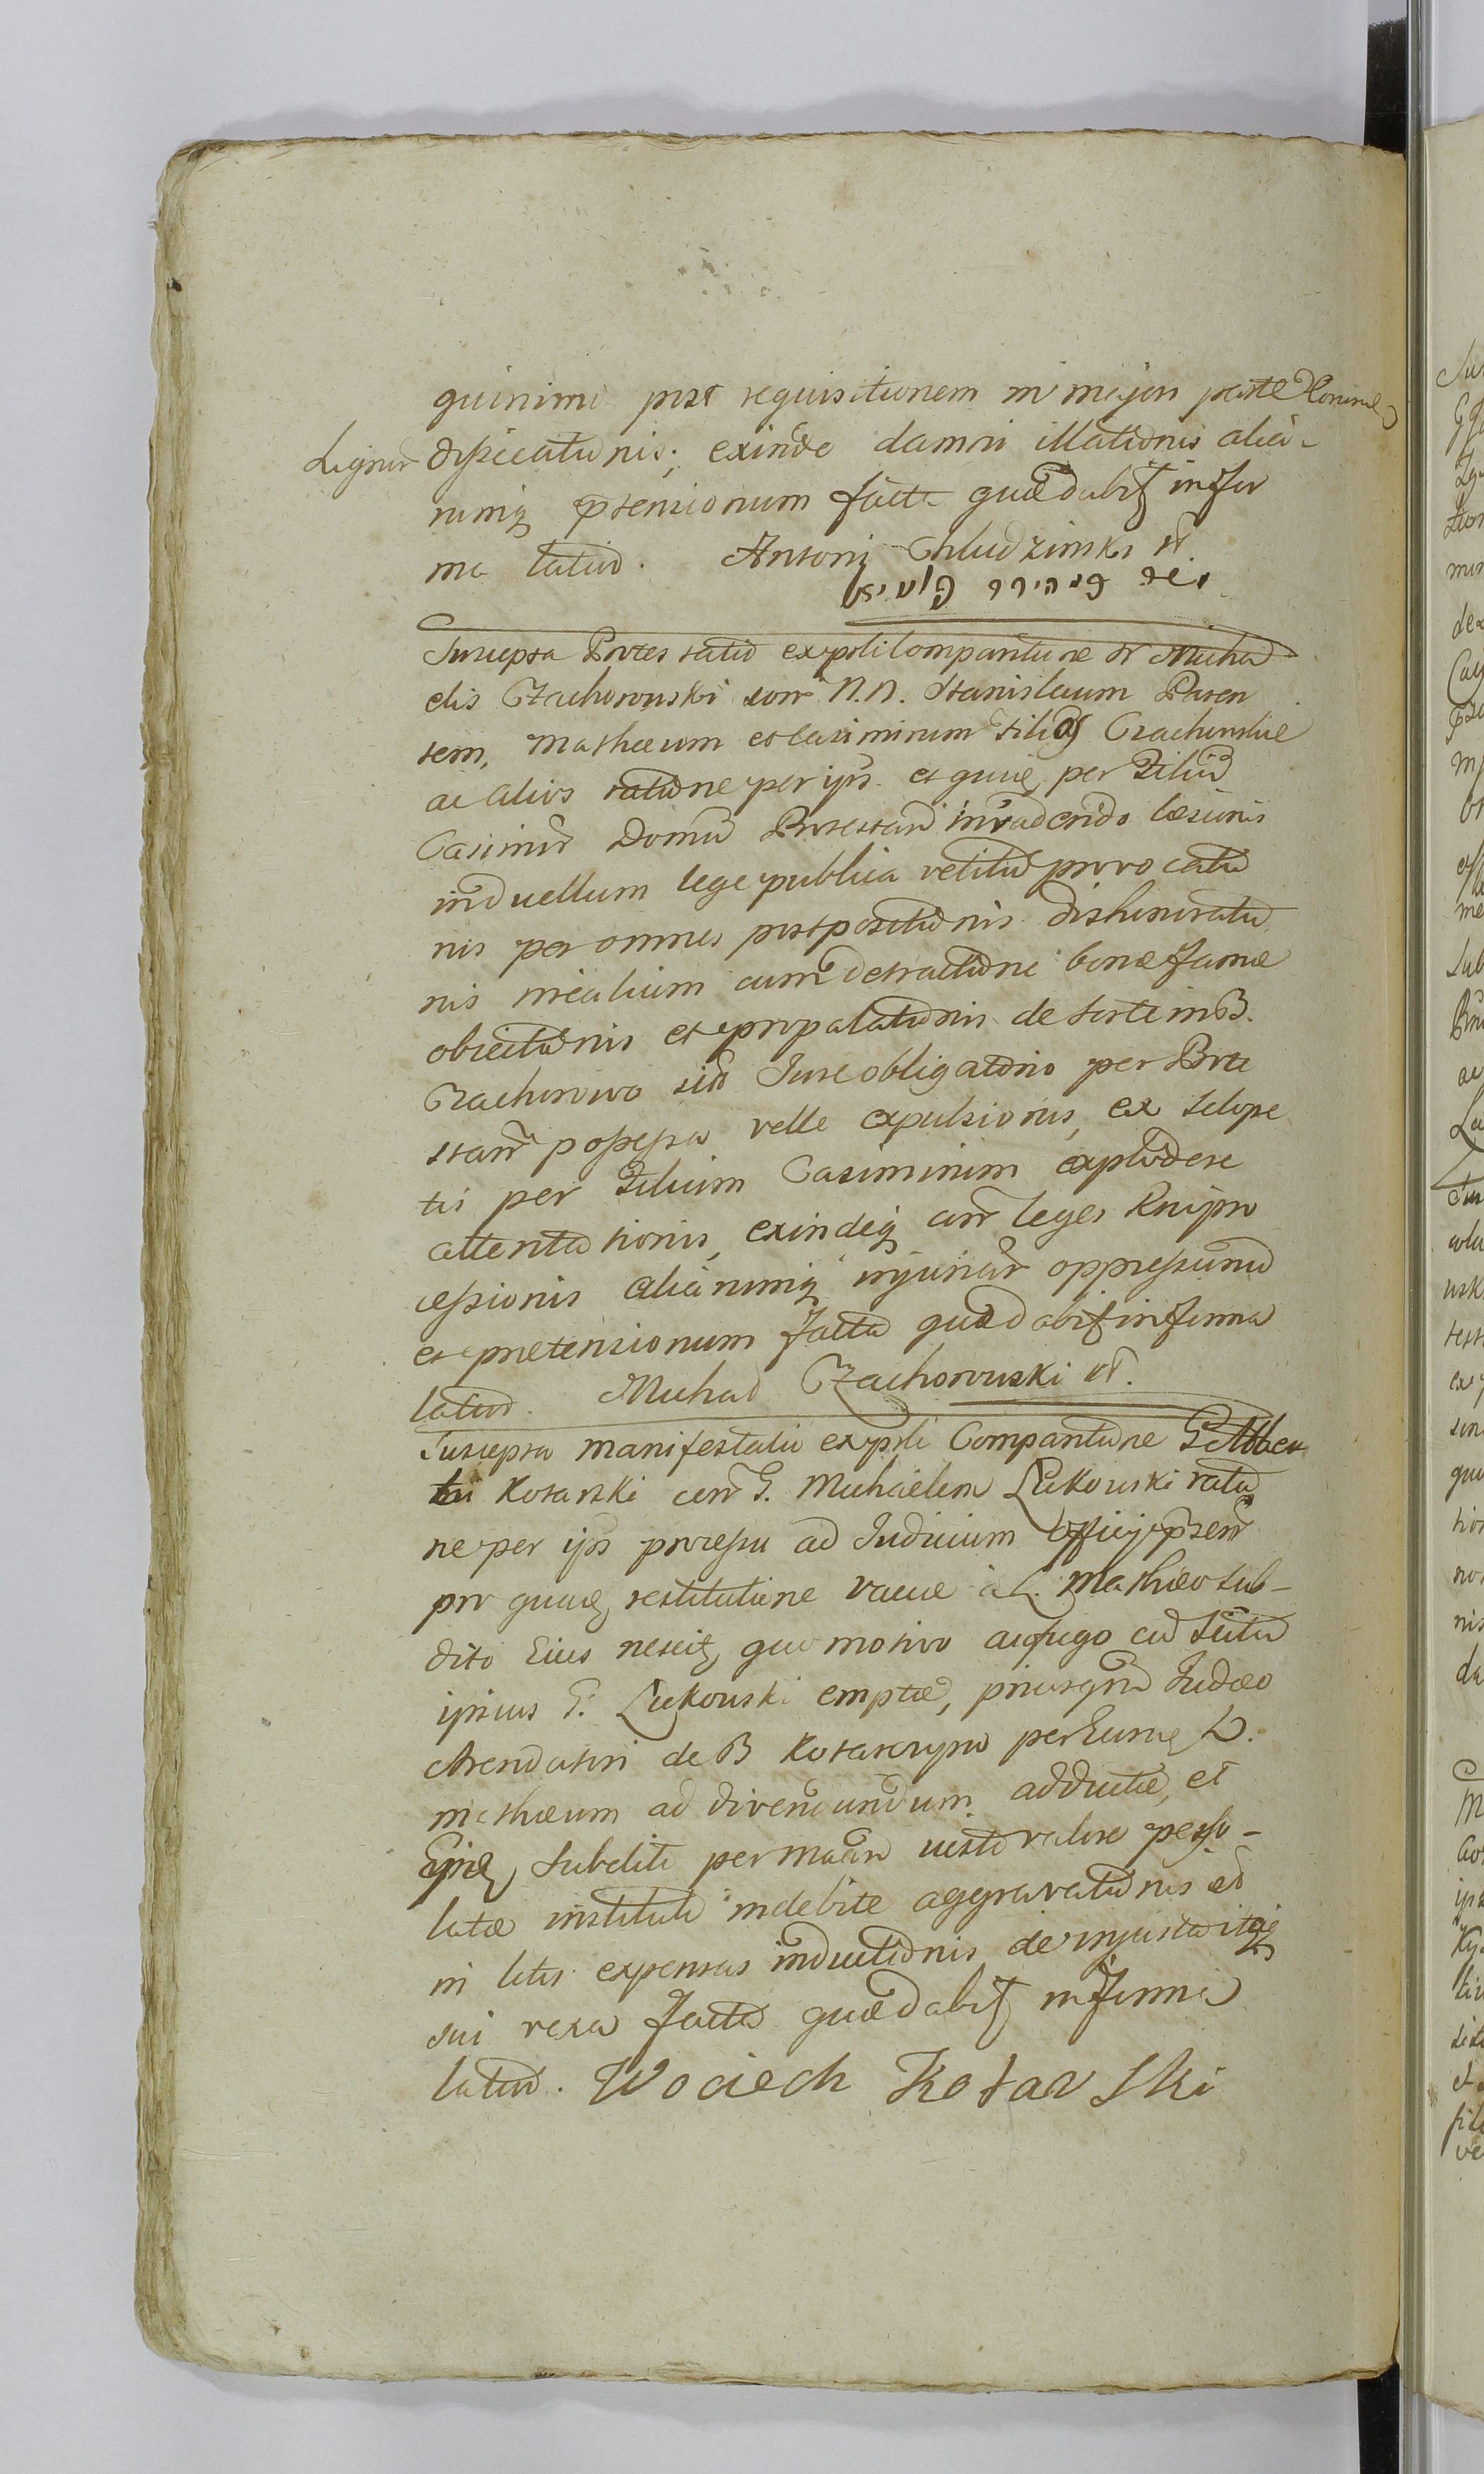 quinimo post requisitionem in majori parte Eorund
Lignor dissicationis; exinde damni illationis alia-
rumq ptensionum facta quae dabit in for
ma latior. Antoni Chludzinski
Suscepta Protestatio ex psli Comparitione Micha
elis Czachorowski con N. N. Stanislaum Paren
tem, Mathaeum et Casimirum Filios Czachorskie
ac alios ratione per ips. et quiuis per Filiu
Casimir Domu Protestan invadendo laesionis
in duellum lege publica vetitu provocatio
nis per omnes postpositionis dishonoratio
nis mealium cum detractione bonae famae
obiectionis et propalationis de sorte in B.
Czachorowo sibi Jure obligatorio per Prote
stan possessa velle expulsionis, ex sclope
tis per Filium Casimirum explodere
attentationis, exindeq con leges Regni pro
cessionis aliarumq injuriar oppressionu
et pretensionum facta quae dabit in forma
latior. Michal Czachorowski
Suscepta manifestatio ex psli Comparitione G. Alber
ti Kotarski con G. Michaelem Łukowski ratio
ne per ips processu ad Judicium officij psen
pro quaue restitutione vaccae a L. Mathaeo sub-
dito Eius nescitq quo motivo aufugo cu scitu
ipsius G. Łukowski emptae, priusqm Judaeo
Arendatori de B Kotarczyno per Eumq L.
Mathaeum ad divendundum adductae, et
Eiusq subditi per maan iusto valore perso-
lutae instituti indebite aggravationis et
in litis expensas inductionis de injusta itaq
sui vexa facta quae dabit in forma
latior. Wociech Kotarski